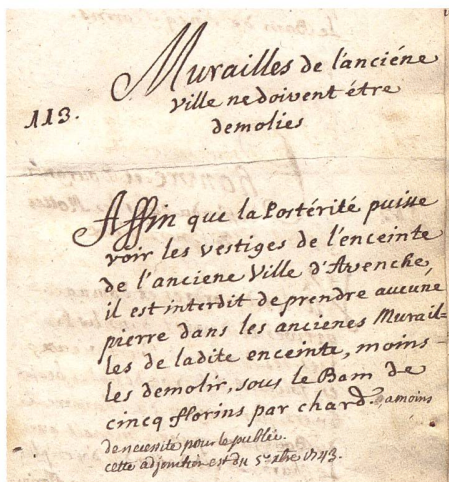 Murailles de l'anciéne
ville ne doivent étre
demolies
113.
Affin que la Postérité puisse
voir les vestiges de l'enceinte
de l'anciene Ville d'Avenche,
il est interdit de prendre aucune
pierre dans les ancienes Murail-
les de ladite enceinte, moins
les demolir, sous le Bam de
cincq florins par chard. a moins
de necessité pour le publie.
cette adjonction est du 5e 1743.